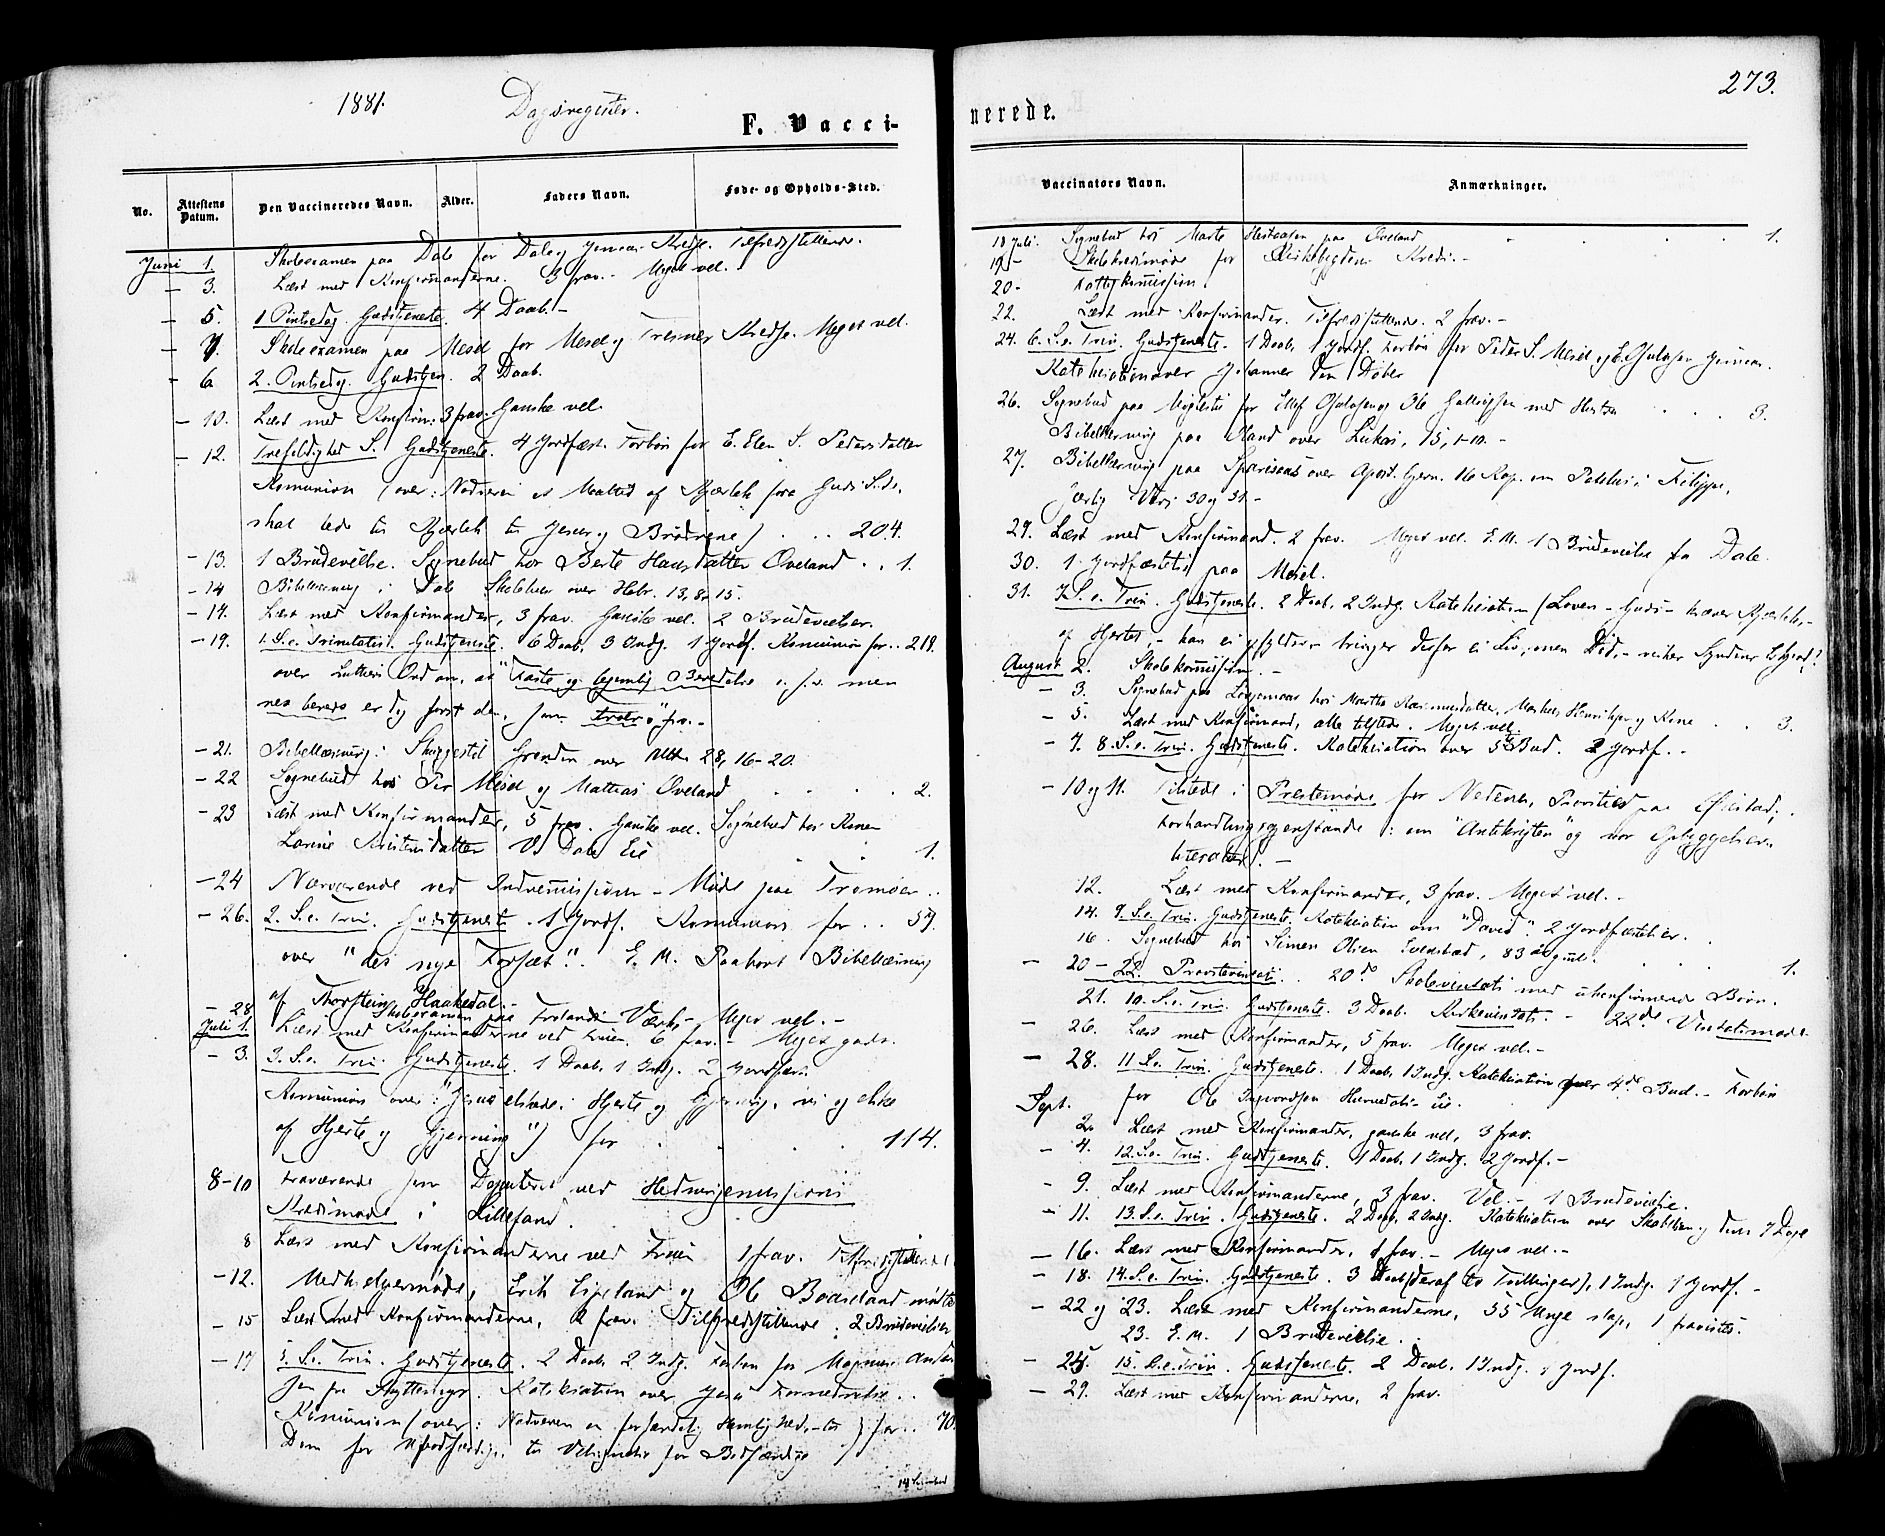 1881. Dagsregister.
F. Vacci-
No.
Attestens Datum.
Den Vaccineredes Navn.
Alder.
Faders Navn.
Føde- og Opholds-Sted.
Juni 1. Skoleexamen paa Dale for Dale og Kreds. Tilfredsstillende.
- 3. Læst med Konfirmanderne. 3 frav. - Meget vel.
- 5. 1 Pintsedag. Gudstjeneste. 4 Daab. -
- 7. Skoleexamen paa Mesel for Mesel og Kredse. Meget vel.
- 6. 2. Pintsedg. Gudstjen. 2 Daab.
- 10. Læst med Konfirm. 3 frav. Ganske vel.
- 12. Trefoldighed S. Gudstjeneste. 4 Jordfæst. Forbøn for E. Elen S. Pedersdatter
Komunion (over: Nadveren et Maaltid af Kjærlek fra Guds Side,
skal lede til Kjærlek til Jesus og Brødrene) . . . 204.
- 13. 1 Brudevielse. Sognebud hos Berte Hansdatter Øveland . . 1.
- 14 Bibellæsning i Dale Skolehus over Hebr. 13, 8, 15.
- 17. Læst med Konfirmander, 3 frav. Ganske vel. 2 Brudevielser.
- 19. 1. S. e. Trinitatis. Gudstjeneste. 6 Daab. 3 Indg. 1 Jordf. Komunion for . . 211.
over Luthers Ord om, at "Faste og legemlig Beredelse o. s. v. men
ret beredt er dog først den, som Troer o" fr. -
- 21. Bibellæsning i Skuggestøl Grenden over Mtt. 28, 16-20.
- 22 Sognebud hos Per Mesel og Mathias Øveland . . . . 2.
- 23 Læst med Konfirmander, 5 frav. Ganske vel. Sognebud hos Konen
Larine Kristensdatter Dale Eie . 1.
- 24 Nærværende ved Indremissions-Møde paa Tromøen . .
- 26. 2. S. e. Trin. Gudstjeneste. 1 Jordf. Komunion for . . 57.
over "det nye Forsæt". E. M. Paahørt Bibellæsning
af Thorstein Haakedal. -
- 28 Skoleexamen paa Frolands Værk - Meget vel. -
Juli 1. Læst med Konfirmanderne ved 6 frav. - Meget godt.
- 3. 3. S. e. Trin. Gudstjeneste. 1 Daab. 1 Indg. 2 Jordfæst.
Komunion over: "Jesus elskede i Hjerte og Gjerning, vi og elske
af Hjerte og Gjerning") for . . . . 114.
8-10 Fraværende som Deputeret ved Hedningemissions
Kredsmøde i Lillesand.
8 Læst med Konfirmanderne ved 1 frav. Tilfredsstillende
- 12. Medhjelpermøde, Erik Espeland og Ole Baaseland mødte
- 15 Læst med Konfirmanderne, 2 frav. Tilfredsstillende. 2 Brudevielser
- 17 5. S. e. Trin. Gudstjeneste. 2 Daab, 2 Indg. Forbøn for Magnus Ander
sen fra Flyttemyr. Katekisation over Jesu Fornedrelse. .
Komunion (over: Nadveren en forfærdelig Hemlighed, - til ) for . . 70.
Dom for Ubodfærdige, til Velsignelse for Bodfærdige
14 Sognebud
273.
nerede.
Vaccinators Navn.
Anmærkninger.
18 Juli. Sognebud hos Marte Hestaasen paa Øveland . . . . 1.
19 - Skolekredsmøde for Kirkebygdens Kreds. -
20 - Fattigkomission.
22. Læst med Konfirmander. Tilfredsstillende. 2 frav. -
24. 6. S. e. Trin. Gudstjeneste. 1 Daab, 1 Jordf. Forbøn for Peder S. Mesel og
Katekisation over Johannes den Døber
26. Sognebud paa for Ellef Osulvsen og Ole med Hustru . . . . 3.
Bibellæsning paa over Lukas, 15, 1-10. -
27. Bibellæsning paa over Apost. Gjern. 16 Kap. om Paulus i Filippi,
særlig Vers 30 og 31. -
29. Læst med Konfirmand. 2 frav. Meget vel. E. M. 1 Brudevielse fra Dale.
30. 1 Jordfæstelse paa Mesel.
31. 7. S. e. Trin. Gudstjeneste. 2 Daab, 2 Indg. Katekisation (Loven - Guds - kræver Kjærlek -
af Hjertet - kan ei opfyldes - bringer derfor ei Liv, men Død, - virker Syndens
August 2. Skolekomission. -
- 3. Sognebud paa hos Marthe Rasmusdatter, Henriksen og Kone . . 3.
- 5. Læst med Konfirmand, alle tilstede. Meget vel.
- 7. 8. S. e. Trin. Gudstjeneste. Katekisation over 5te Bud. 2 Jordf. -
- 10 og 11. Tilstede i Prestemøde for Nedenes Provsti paa Øiestad;
Forhandlingsgjenstande: om "Antikristen" og vor Opbyggelses-
literatur. -
12. Læst med Konfirmander, 3 frav. Meget vel. -
14. 9. S. e. Trin. Gudstjeneste. Katekisation om "David". 2 Jordfæstelser.
16. Sognebud hos Simen Olsen 83 Aar gml. . . . . 1.
- 20 - 22. Provstevisitats. . 20de Skolevisitats med ukonfirmerede Børn.
21. 10. S. e. Trin. Gudstjeneste. 3 Daab. Kirkevisitats. - 22de Visitatsmøde
- 26. Læst med Konfirmander, 5 frav. Meget vel. -
- 28. 11. S. e. Trin. Gudstjeneste. 1 Daab, 1 Indg. Katekisation over 4de Bud. - Forbøn
for Ole Eie.
Sept. 2. Læst med Konfirmander, ganske vel, 3 frav.
- 4. 12. S. e. Trin. Gudstjeneste. 1 Daab, 1 Indg. 2 Jordf. -
- 9. Læst med Konfirmanderne, 3 frav. Vel. - 1 Brudevielse.
- 11. 13. S. e. Trin. Gudstjeneste. 2 Daab, 2 Indg. Katekisation over
- 16. Læst med Konfirmander, 1 frav. - Meget vel. -
- 18. 14. S. e. Trin. Gudstjeneste. 3 Daab (deraf to Tvillinger), 1 Indg. 1 Jordf. -
- 22 og 23. Læst med Konfirmanderne, 55 Unge 1 fravistes.
23. E. M. 1 Brudevielse.
- 25. 15. S. e. Trin. Gudstjeneste. 2 Daab, 1 Indg. 1 Jordf.
- 29. Læst med Konfirmanderne, 2 frav.